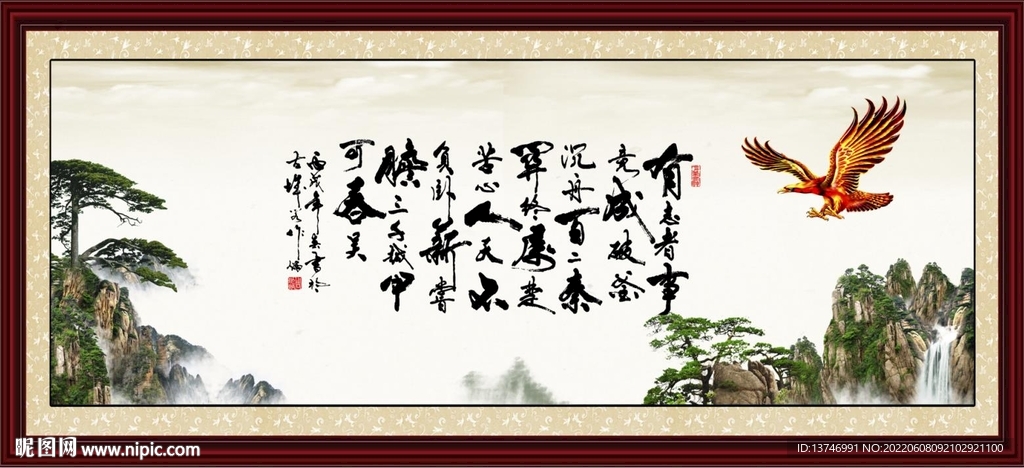 有志者事
竟成破釜
沉舟百二秦
關终屬楚
苦心人天不
负卧薪嘗
膽三千越甲
可吞吴
丙戌年書於
昵图网 www.nipic.com
ID:13746991 NO:20220608092102921100